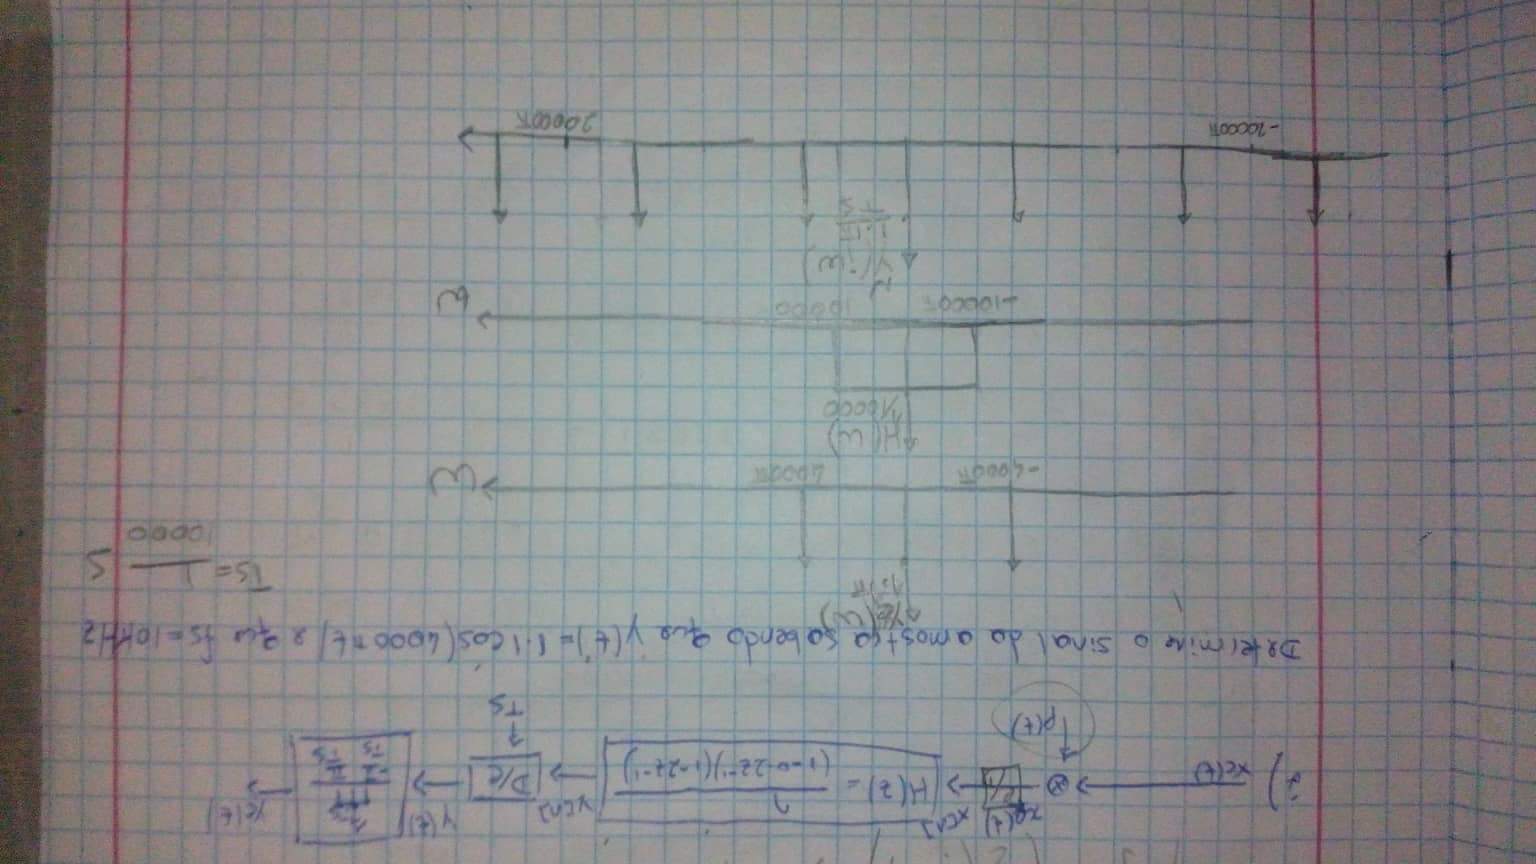 ?) xc(t) p(t) xp(t) x[n] H(z) = 1/((1-0.2z⁻¹)(1-2z⁻¹)) y[n] D/C Ts y(t) yc(t)
Determine o sinal da amostra sabendo que y(t)=1.1cos(4000πt) e que fs=10kHz
Ts = 1/10000 s
-4000π 4000π ω
H(ω)
1/10000
-10000π 10000 ω
Y(jω)
-20000π 20000π